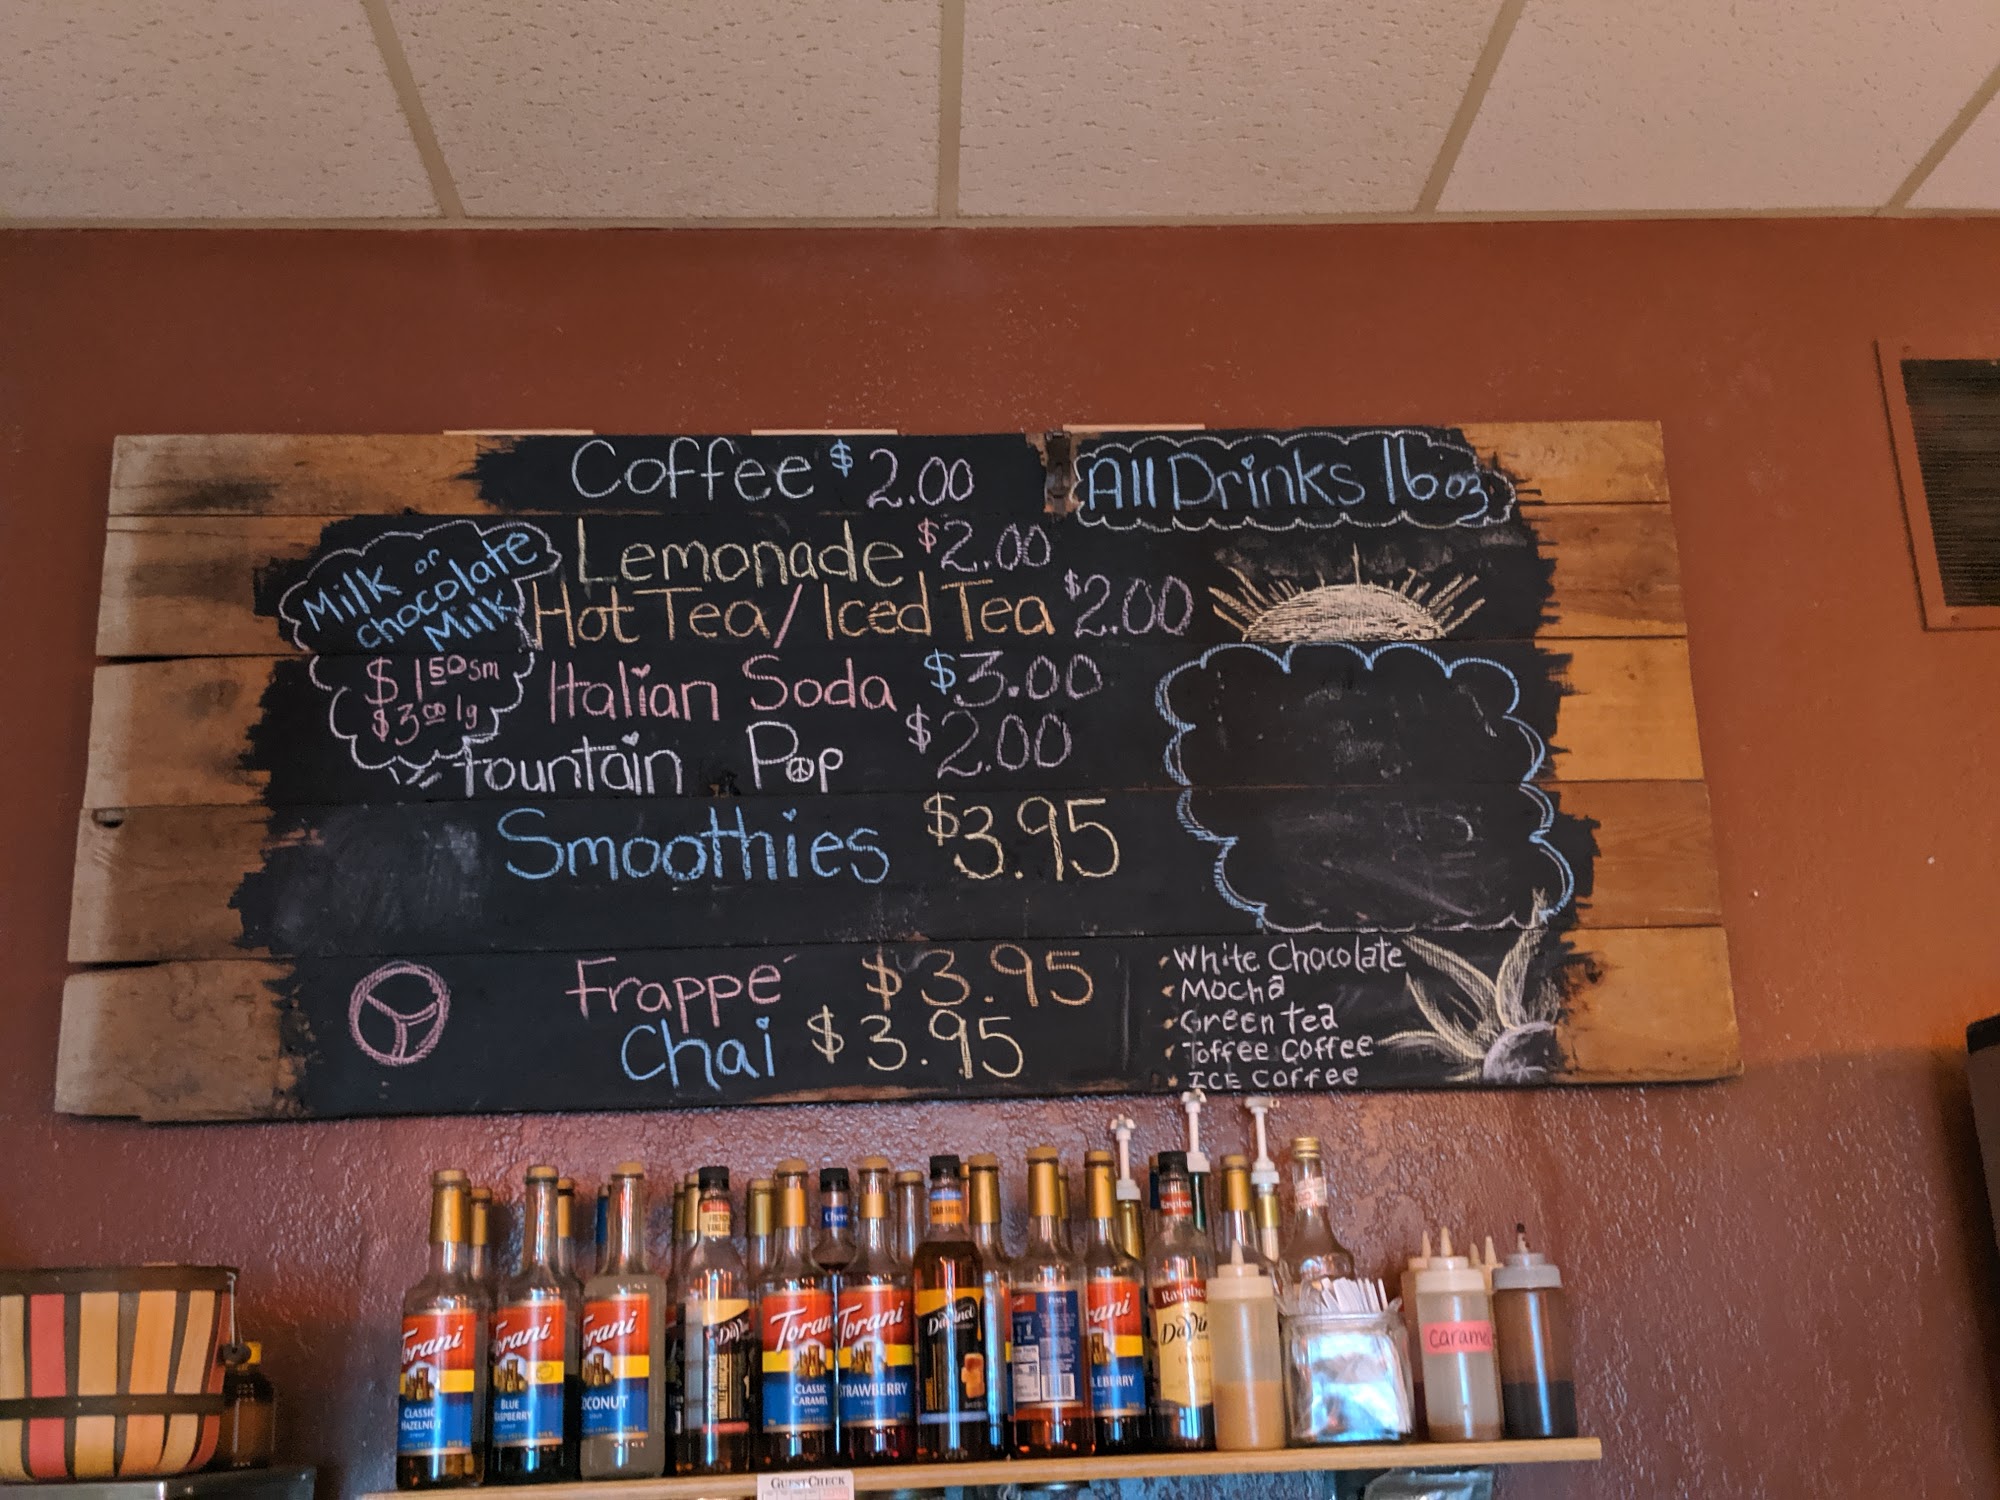 Coffee $2.00
All Drinks 16 oz
Milk or
chocolate
Milk
$1.50 sm
$3.00 lg
Lemonade $2.00
Hot Tea/Iced Tea $2.00
Italian Soda $3.00
Fountain Pop $2.00
Smoothies $3.95
Frappé $3.95
Chai $3.95
White Chocolate
Mocha
Green tea
Toffee Coffee
ICE Coffee
Torani
CLASSIC
HAZELNUT
Torani
BLUE
RASPBERRY
Torani
COCONUT
FRENCH
VANILLA
DaVinci
Torani
CLASSIC
CARAMEL
Torani
STRAWBERRY
CARAMEL
DaVinci
Torani
Raspberry
DaVinci
Caramel
GUESTCHECK